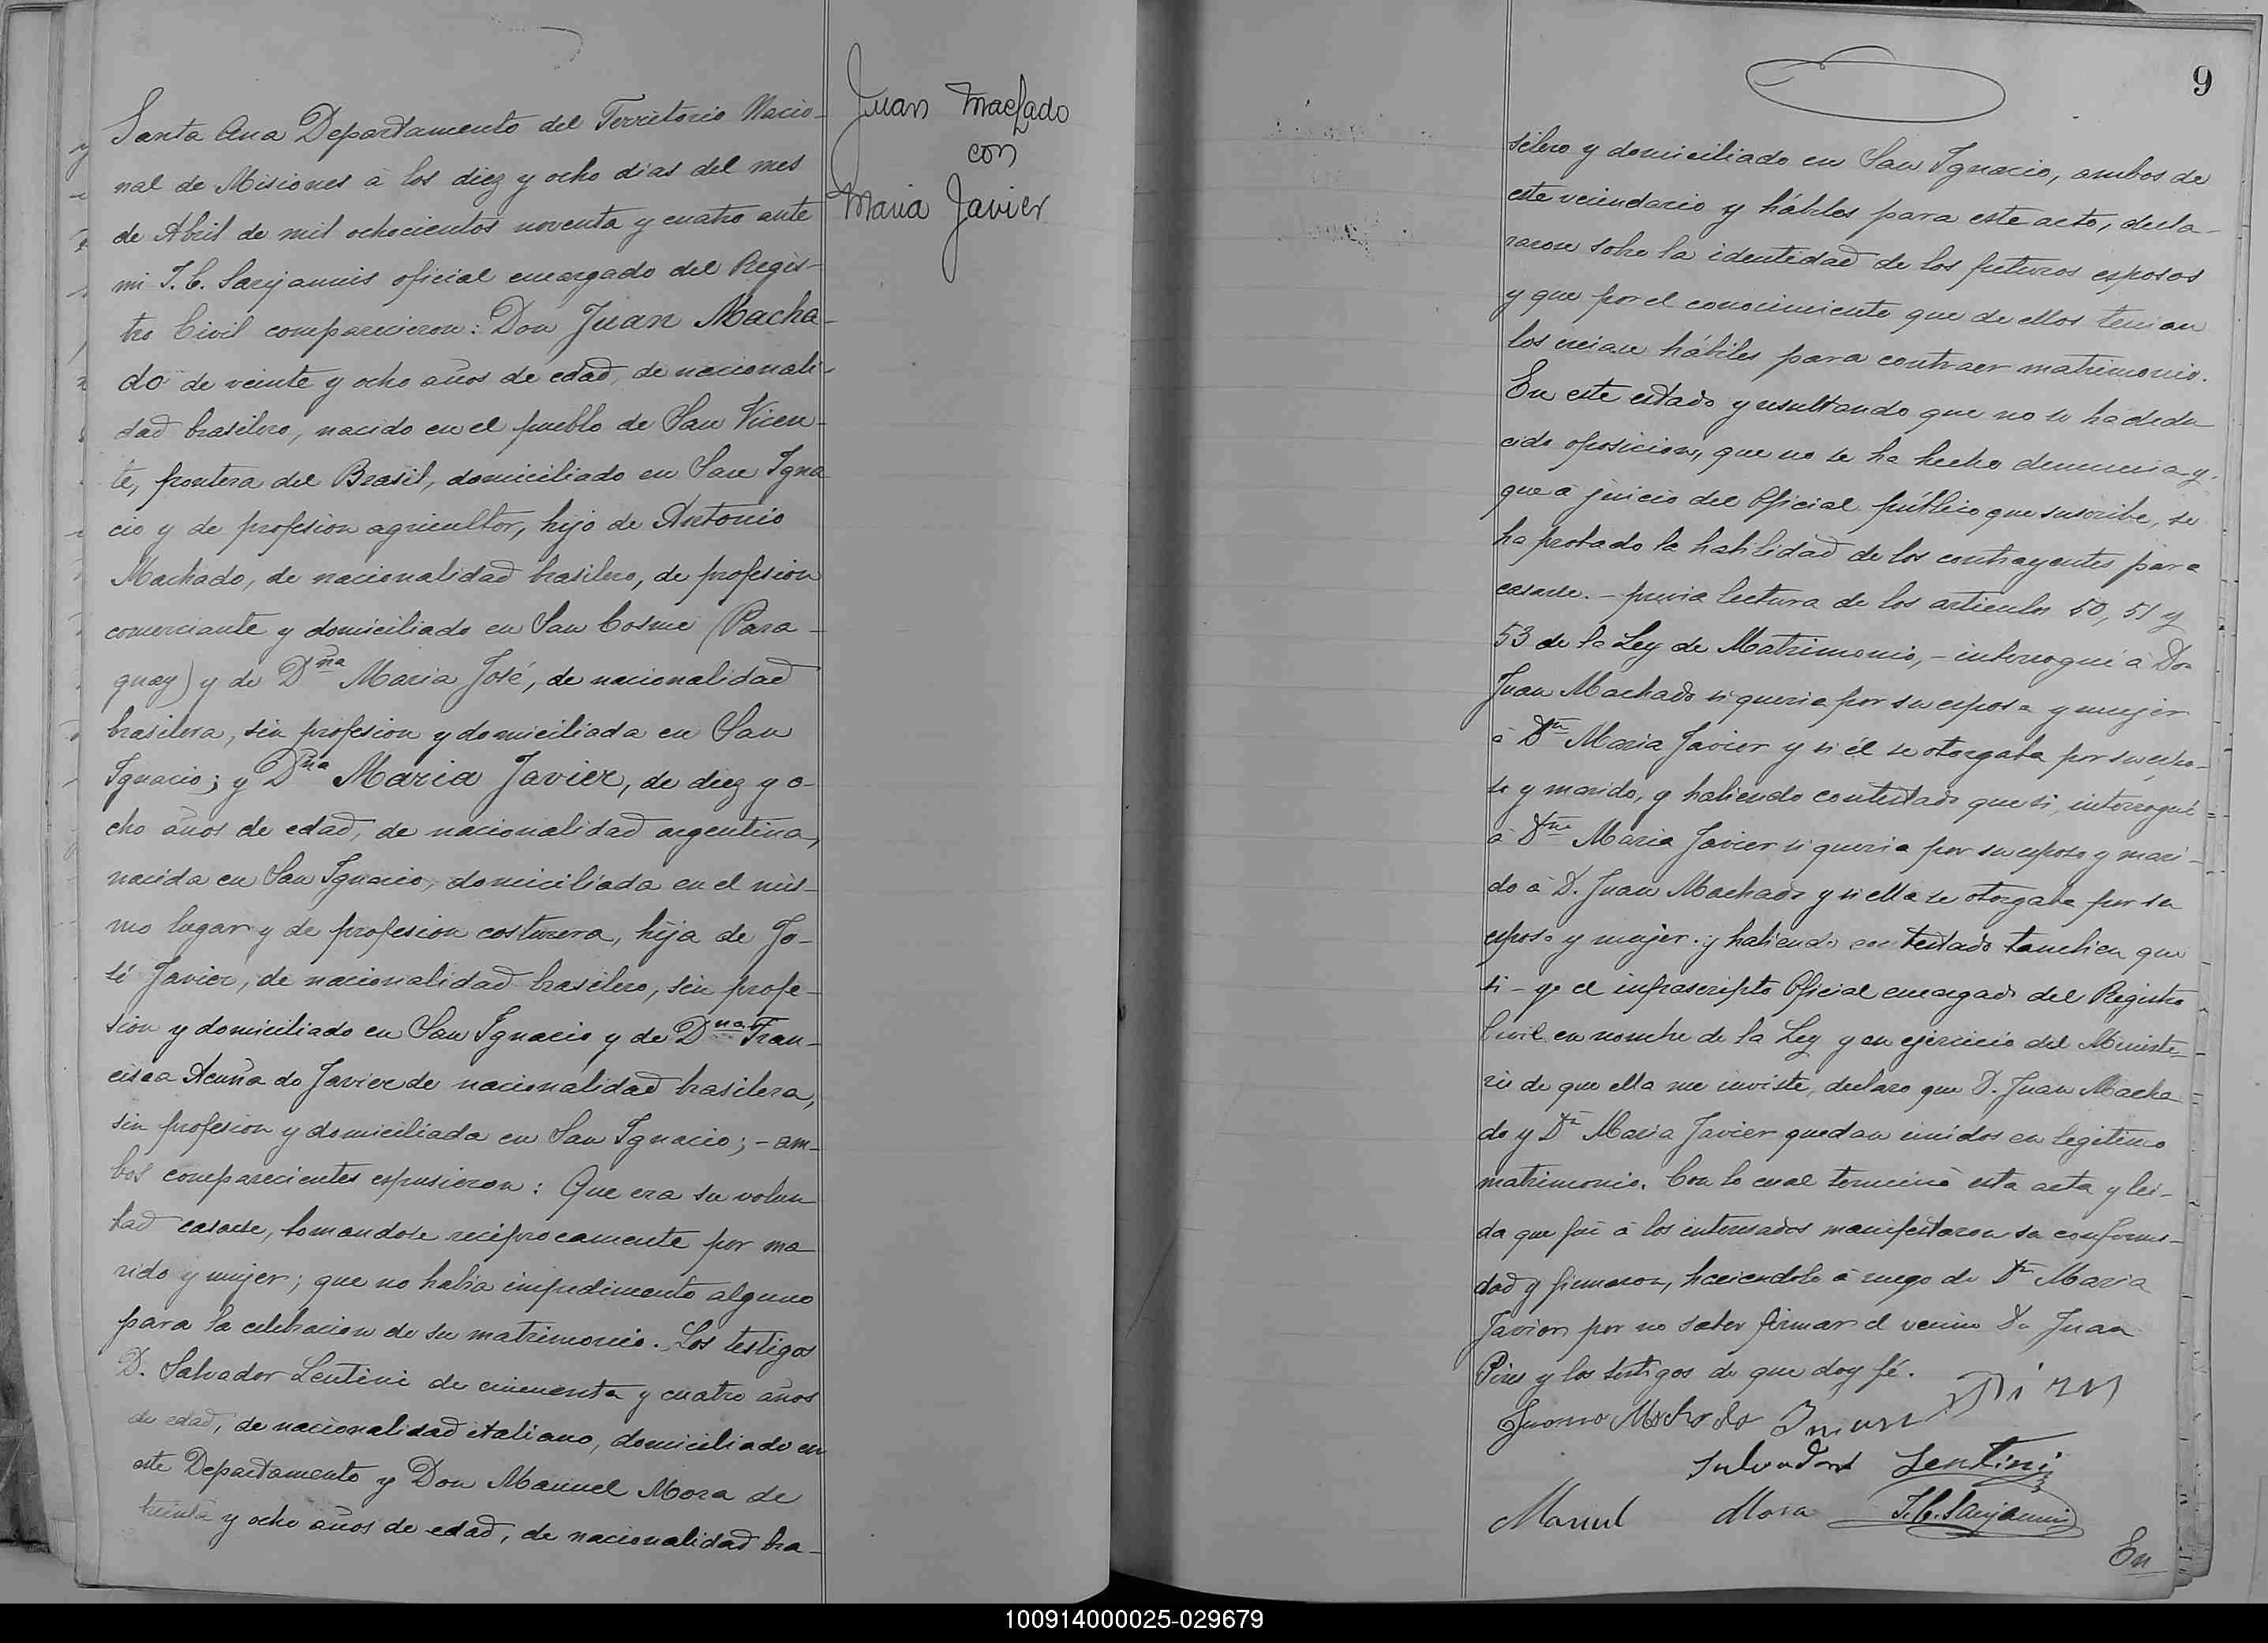 Santa Ana Departamento del Territorio Nacio-
nal de Misiones á los diez y ocho dias del mes
de Abril de mil ochocientos noventa y cuatro ante
mi J. C. Sanjannis oficial encargado del Regis-
tro Civil comparecieron: Don Juan Macha-
do de veinte y ocho años de edad, de nacionali-
dad brasilero, nacido en el pueblo de San Vicen-
te, frontera del Brasil, domiciliado en San Igna
cio y de profesion agricultor, hijo de Antonio
Machado, de nacionalidad brasilero, de profesion
comerciante y domiciliado en San Cosme (Para-
guay) y de Dña Maria José, de nacionalidad
brasilera, sin profesion y domiciliada en San
Ignacio; y Dña Maria Javier, de diez y o-
cho años de edad, de nacionalidad argentina,
nacida en San Ignacio, domiciliada en el mis-
mo lugar y de profesion costurera, hija de Jo-
sé Javier, de nacionalidad brasilero, sin profe-
sion y domiciliado en San Ignacio y de Dna Fran-
cisca Acuña de Javier de nacionalidad brasilera,
sin profesion y domiciliada en San Ignacio; - am-
bos comparecientes espusieron: Que era su volun
tad casarse, tomandose reciprocamente por ma
rido y mujer; que no habia impedimento alguno
para la celebracion de su matrimonio. Los testigos
D. Salvador Lentini de cincuenta y cuatro años
de edad, de nacionalidad italiano, domiciliado en
este Departamento y Don Manuel Mora de
treinta y ocho años de edad, de nacionalidad bra-
Juan Machado
con
Maria Javier
9
silero y domiciliado en San Ignacio, ambos de
este vecindario y hábiles para este acto, decla-
raron sobre la identidad de los futuros esposos
y que por el conocimiento que de ellos tenian
los creian hábiles para contraer matrimonio.
En este estado y resultando que no se ha dedu
cido oposicion, que no se ha hecho denuncia y
que á juicio del Oficial público que suscribe, se
ha probado la habilidad de los contrayentes para
casarse. - previa lectura de los articulos 50, 51 y
53 de la Ley de Matrimonio, - interrogué á Dn
Juan Machado si queria por su esposa y mujer
á Dña Maria Javier y si él se otorgaba por su espo-
so y marido, y habiendo contestado que si, interrogué
á Dña Maria Javier si queria por su esposo y mari-
do á D. Juan Machado y si ella se otorgaba por su
esposa y mujer. y habiendo contestado tambien que
si - yo el infrascripto Oficial encargado del Registro
Civil en nombre de la Ley y en ejercicio del Ministe-
rio de que ella me inviste, declaro que D. Juan Macha
do y Dª Maria Javier quedan unidos en legitimo
matrimonio. Con lo cual terminó esta acta y lei-
da que fué á los interesados manifestaron su conformi-
dad y firmaron, haciendolo á ruego de Dª Maria
Javier por no saber firmar el vecino Dn Juan
Pires y los testigos de que doy fé.
Juano Machado Juan Pires
Salvador Lentini
Manuel Mora J. C. Sanjannis
En
100914000025-029679